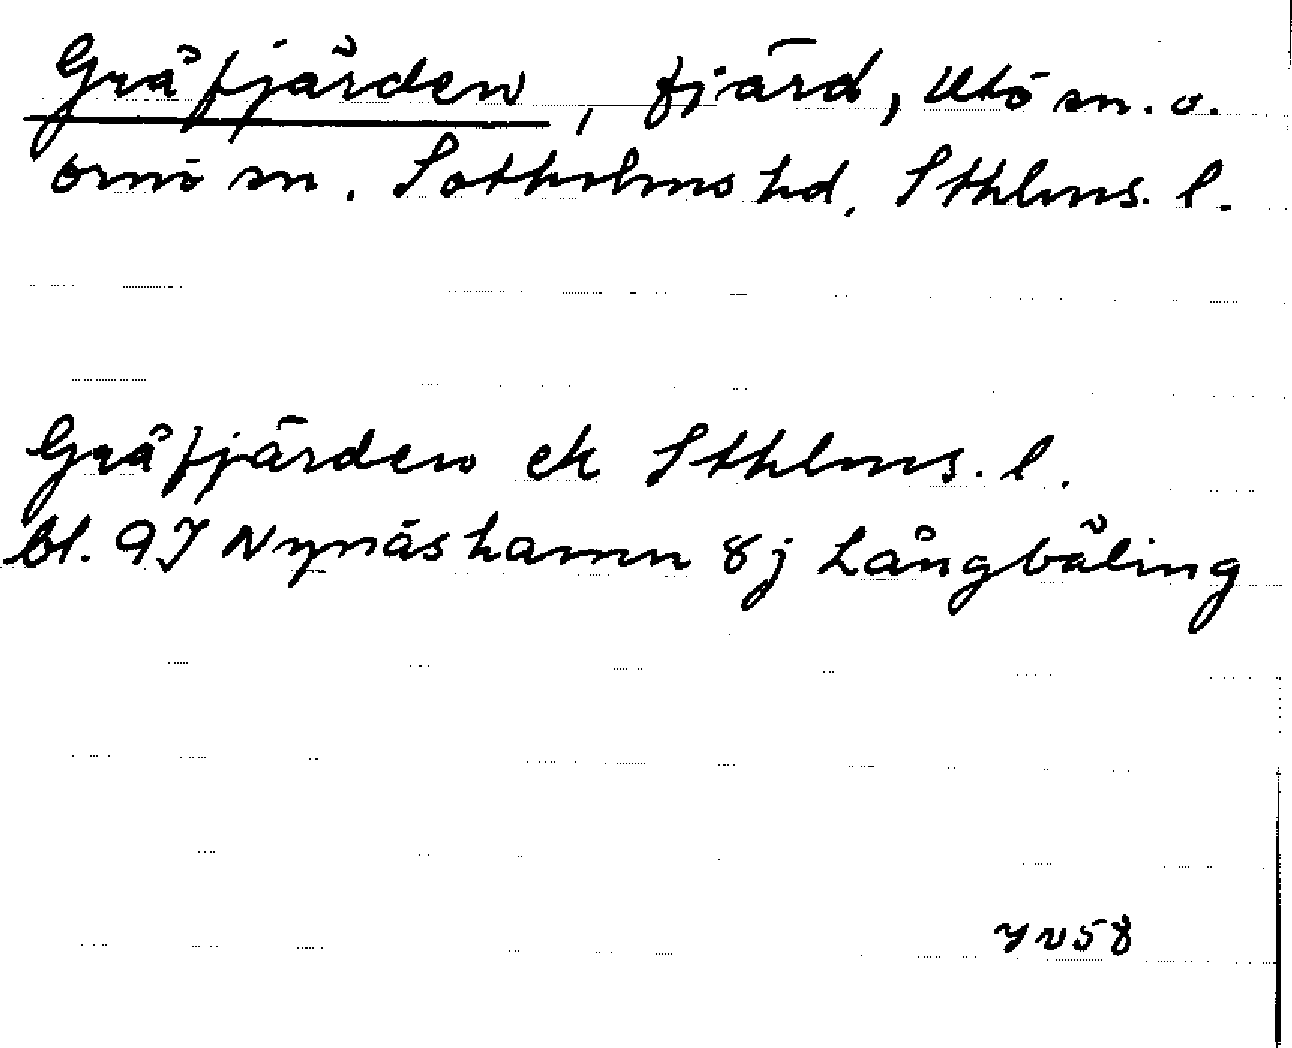 Gråfjärden, fjärd, Utö sn. o.
ornö sn. Sotholms hd. Sthlms. l.
Gråfjärden ek Sthlms. l.
bl. 9I Nynäshamn 8j Långbäling
yv58